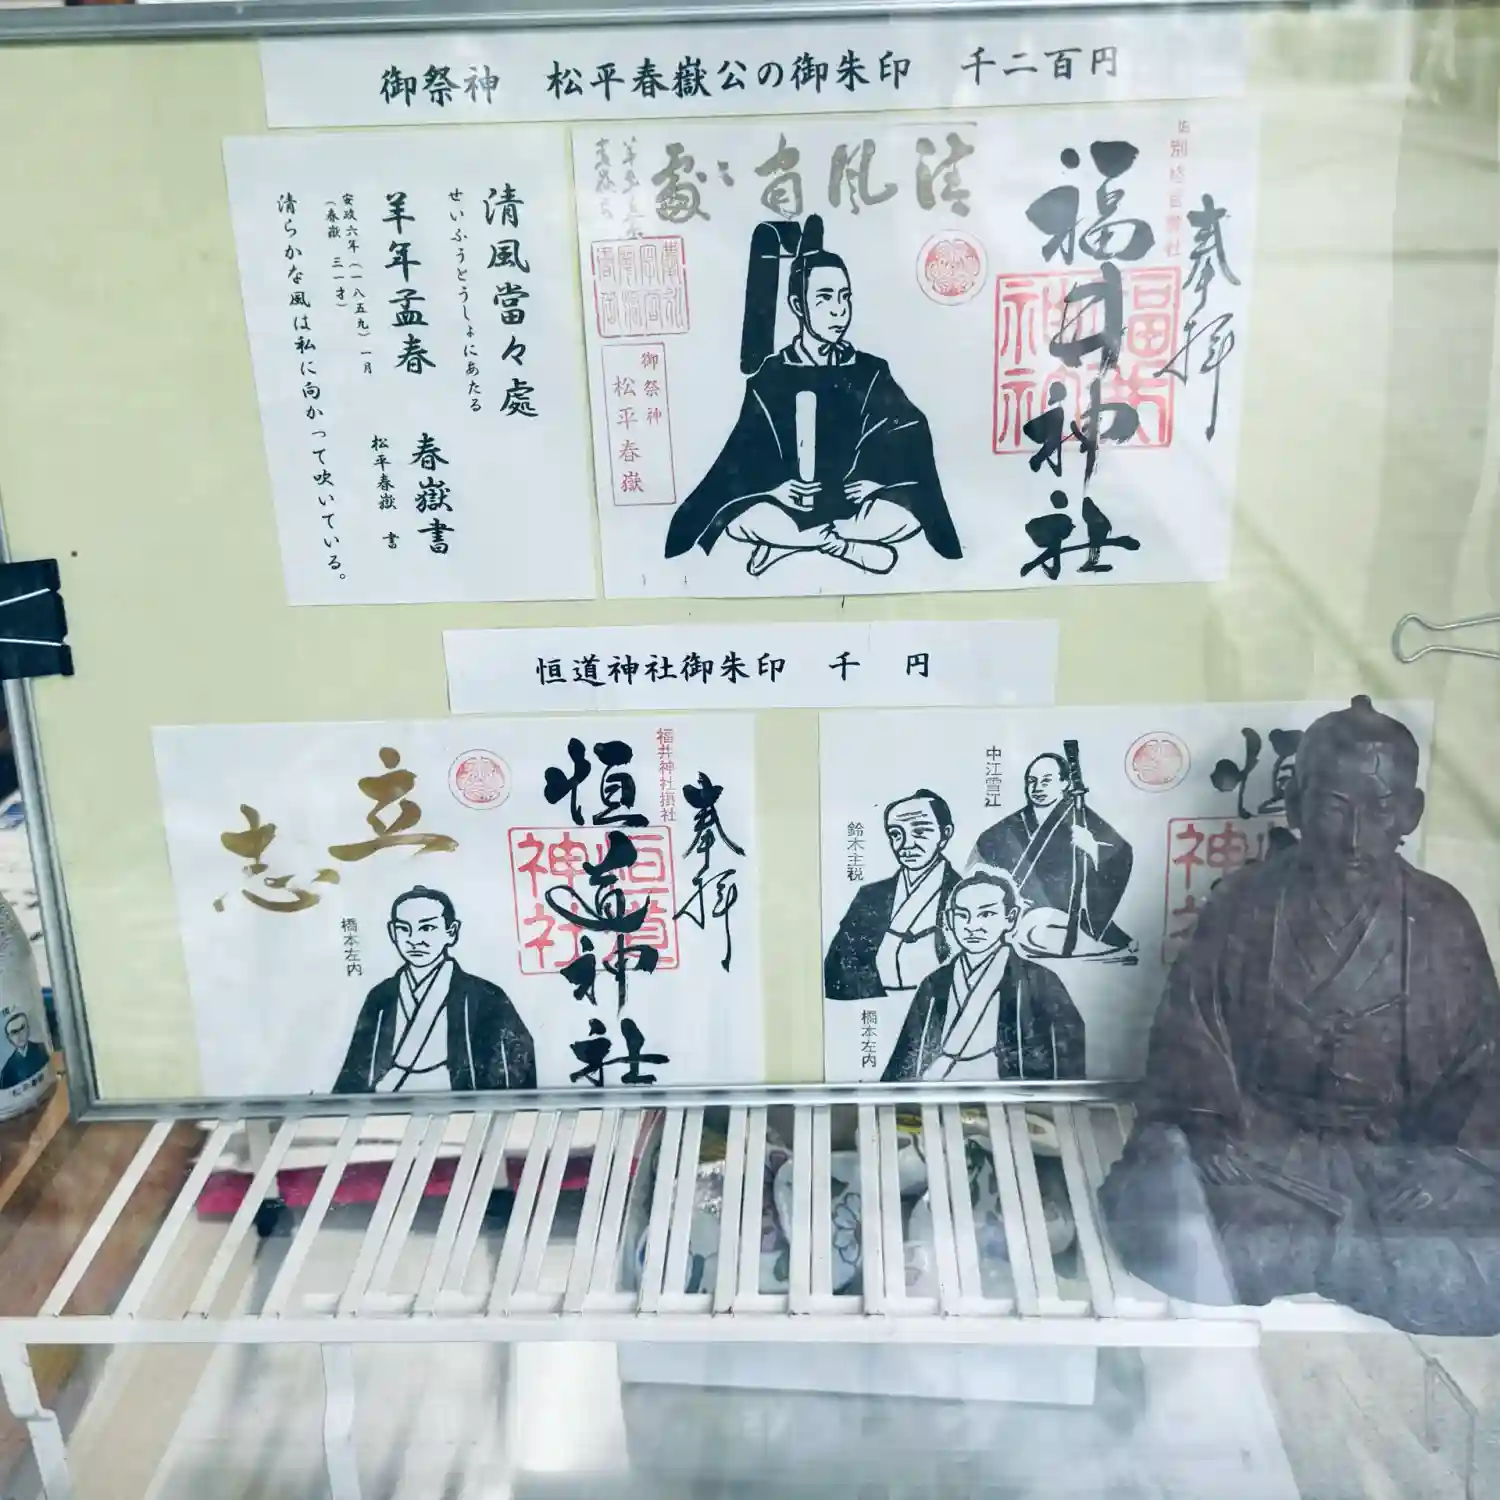 御祭神 松平春嶽公の御朱印 千二百円
清風當々處
せいふうとうしょにあたる
羊年孟春 春嶽書
安政六年(一八五九)一月 松平春嶽 書
(春嶽 三一才)
清らかな風は私に向かって吹いている。
奉拝
別格官幣社
福井神社
福井神社
清風當々處
御祭神
松平春嶽
恒道神社御朱印 千 円
奉拝
福井神社摂社
恒道神社
恒道神社
立志
橋本左内
恒
神
中江雪江
鈴木主税
橋本左内